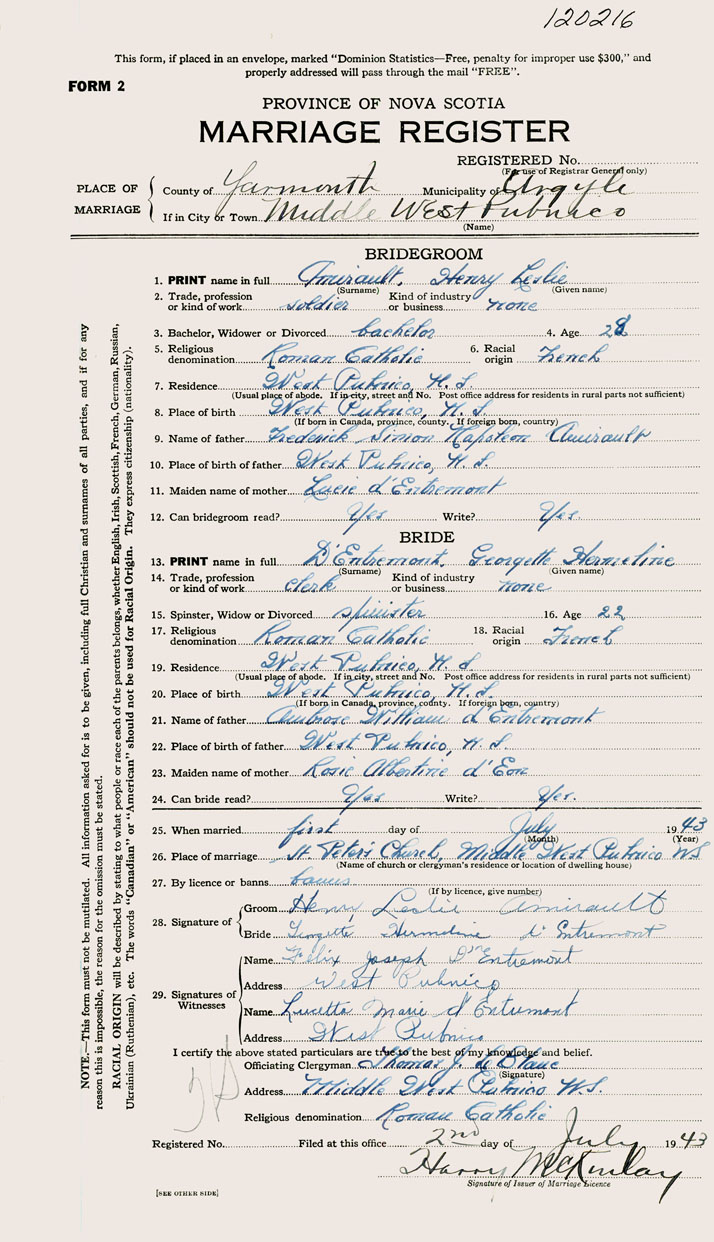 120216
This form, if placed in an envelope, marked "Dominion Statistics—Free, penalty for improper use $300," and
properly addressed will pass through the mail "FREE".
FORM 2
PROVINCE OF NOVA SCOTIA
MARRIAGE REGISTER
REGISTERED No.
(For use of Registrar General only)
PLACE OF MARRIAGE
County of Yarmouth Municipality of Argyle
If in City or Town Middle West Pubnico
(Name)
BRIDEGROOM
1. PRINT name in full Amirault, Henry Leslie
(Surname) (Given name)
2. Trade, profession or kind of work soldier Kind of industry or business none
3. Bachelor, Widower or Divorced bachelor 4. Age 28
5. Religious denomination Roman Catholic 6. Racial origin French
7. Residence West Pubnico, N. S.
(Usual place of abode. If in city, street and No. Post office address for residents in rural parts not sufficient)
8. Place of birth West Pubnico, N. S.
(If born in Canada, province, county. If foreign born, country)
9. Name of father Frederick Simon Napoleon Amirault
10. Place of birth of father West Pubnico, N. S.
11. Maiden name of mother Lucie d'Entremont
12. Can bridegroom read? Yes Write? Yes.
BRIDE
13. PRINT name in full D'Entremont, Georgette Hermeline
(Surname) (Given name)
14. Trade, profession or kind of work clerk Kind of industry or business none
15. Spinster, Widow or Divorced spinster 16. Age 22
17. Religious denomination Roman Catholic 18. Racial origin French
19. Residence West Pubnico, N. S.
(Usual place of abode. If in city, street and No. Post office address for residents in rural parts not sufficient)
20. Place of birth West Pubnico, N. S.
(If born in Canada, province, county. If foreign born, country)
21. Name of father Ambrose William d'Entremont
22. Place of birth of father West Pubnico, N. S.
23. Maiden name of mother Rosie Albertine d'Eon
24. Can bride read? Yes Write? Yes.
25. When married first day of July 1943
(Month) (Year)
26. Place of marriage St. Peter's Church, Middle West Pubnico N.S.
(Name of church or clergyman's residence or location of dwelling house)
27. By licence or banns banns
(If by licence, give number)
28. Signature of
Groom Henry Leslie Amirault
Bride Georgette Hermeline d'Entremont
29. Signatures of Witnesses
Name Felix Joseph D'Entremont
Address West Pubnico
Name Lucette Marie d'Entremont
Address West Pubnico
I certify the above stated particulars are true to the best of my knowledge and belief.
Officiating Clergyman Thomas J. LeBlanc
(Signature)
Address Middle West Pubnico N.S.
Religious denomination Roman Catholic
Registered No. Filed at this office 2nd day of July 1943
Harry McKinlay
Signature of Issuer of Marriage Licence
[SEE OTHER SIDE]
NOTE.—This form must not be mutilated. All information asked for is to be given, including full Christian and surnames of all parties, and if for any
reason this is impossible, the reason for the omission must be stated.
RACIAL ORIGIN will be described by stating to what people or race each of the parents belongs, whether English, Irish, Scottish, French, German, Russian,
Ukrainian (Ruthenian), etc. The words "Canadian" or "American" should not be used for Racial Origin. They express citizenship (nationality).